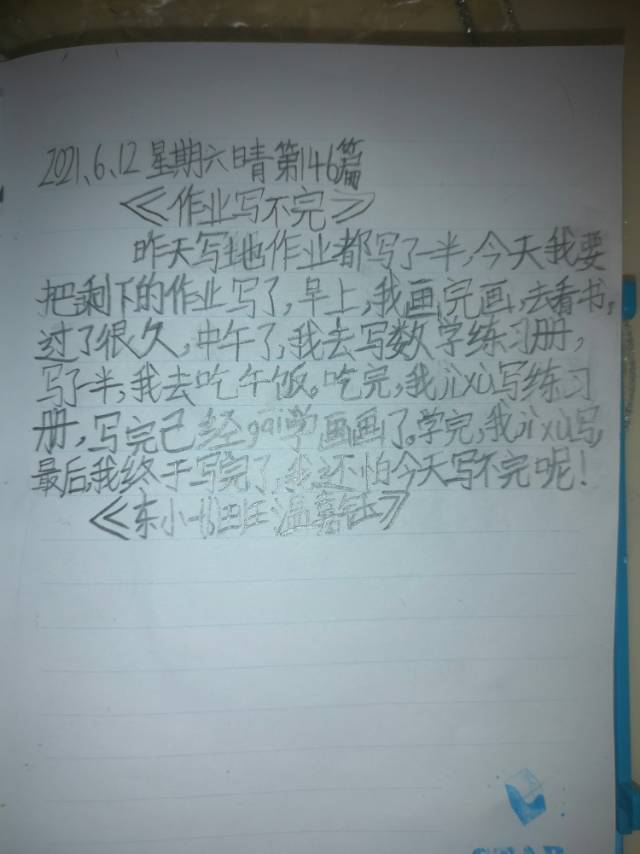 2021、6、12 星期六 晴 第146篇
《作业写不完》
昨天写地作业都写了一半,今天我要
把剩下的作业写了,早上,我画完画,去看书,
过了很久,中午了,我去写数学练习册,
写了半,我去吃午饭。吃完,我jìxù写练习
册,写完已经gai学画画了。学完,我jìxù写,
最后,我终于写完了,我还怕今天写不完呢!
《东小一